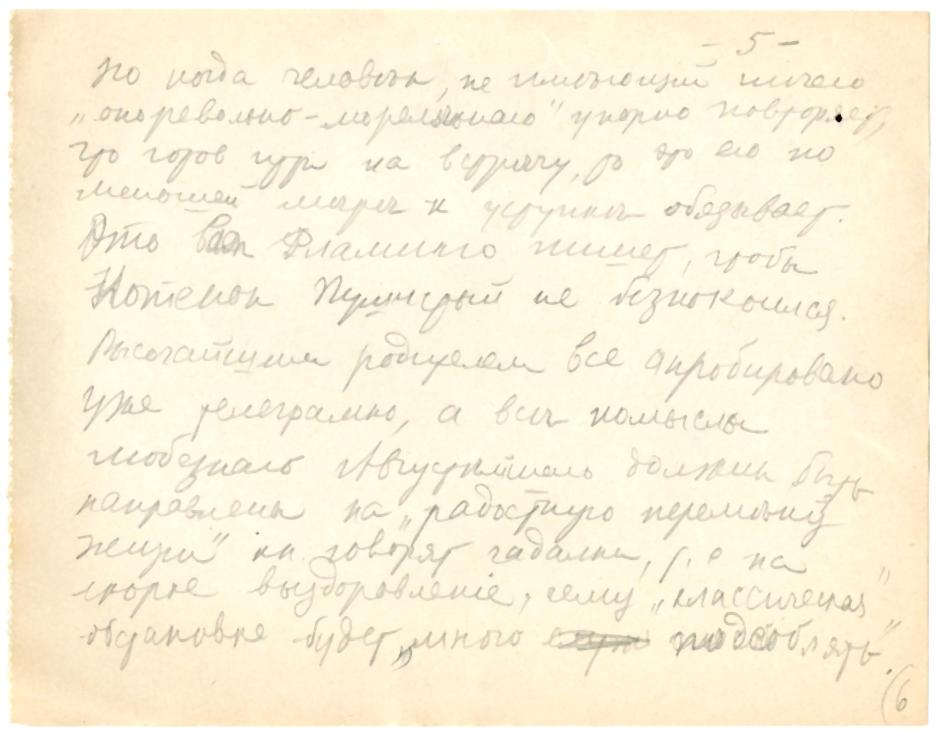 - 5 -
Но когда человѣк, не имѣющий ничего
„опоревольно-морельнаго” упорно повторяет,
что готов идти на встрѣчу, то это его по
меньшей мѣрѣ к уступкѣ обязывает.
Это Вам Фламинго пишет, чтобы
Котенок Пушистый не безпокоился.
Высочайшим родителем все апробировано
уже телеграмно, а всѣ помыслы
любезнаго Августѣйшаго должны быть
направлены на „радостную перемѣну
жизни” кк говорят гадалки, т. е на
скорое выздоровленіе, чему „классическая
обстановка будет „много подсоблять”.
(6